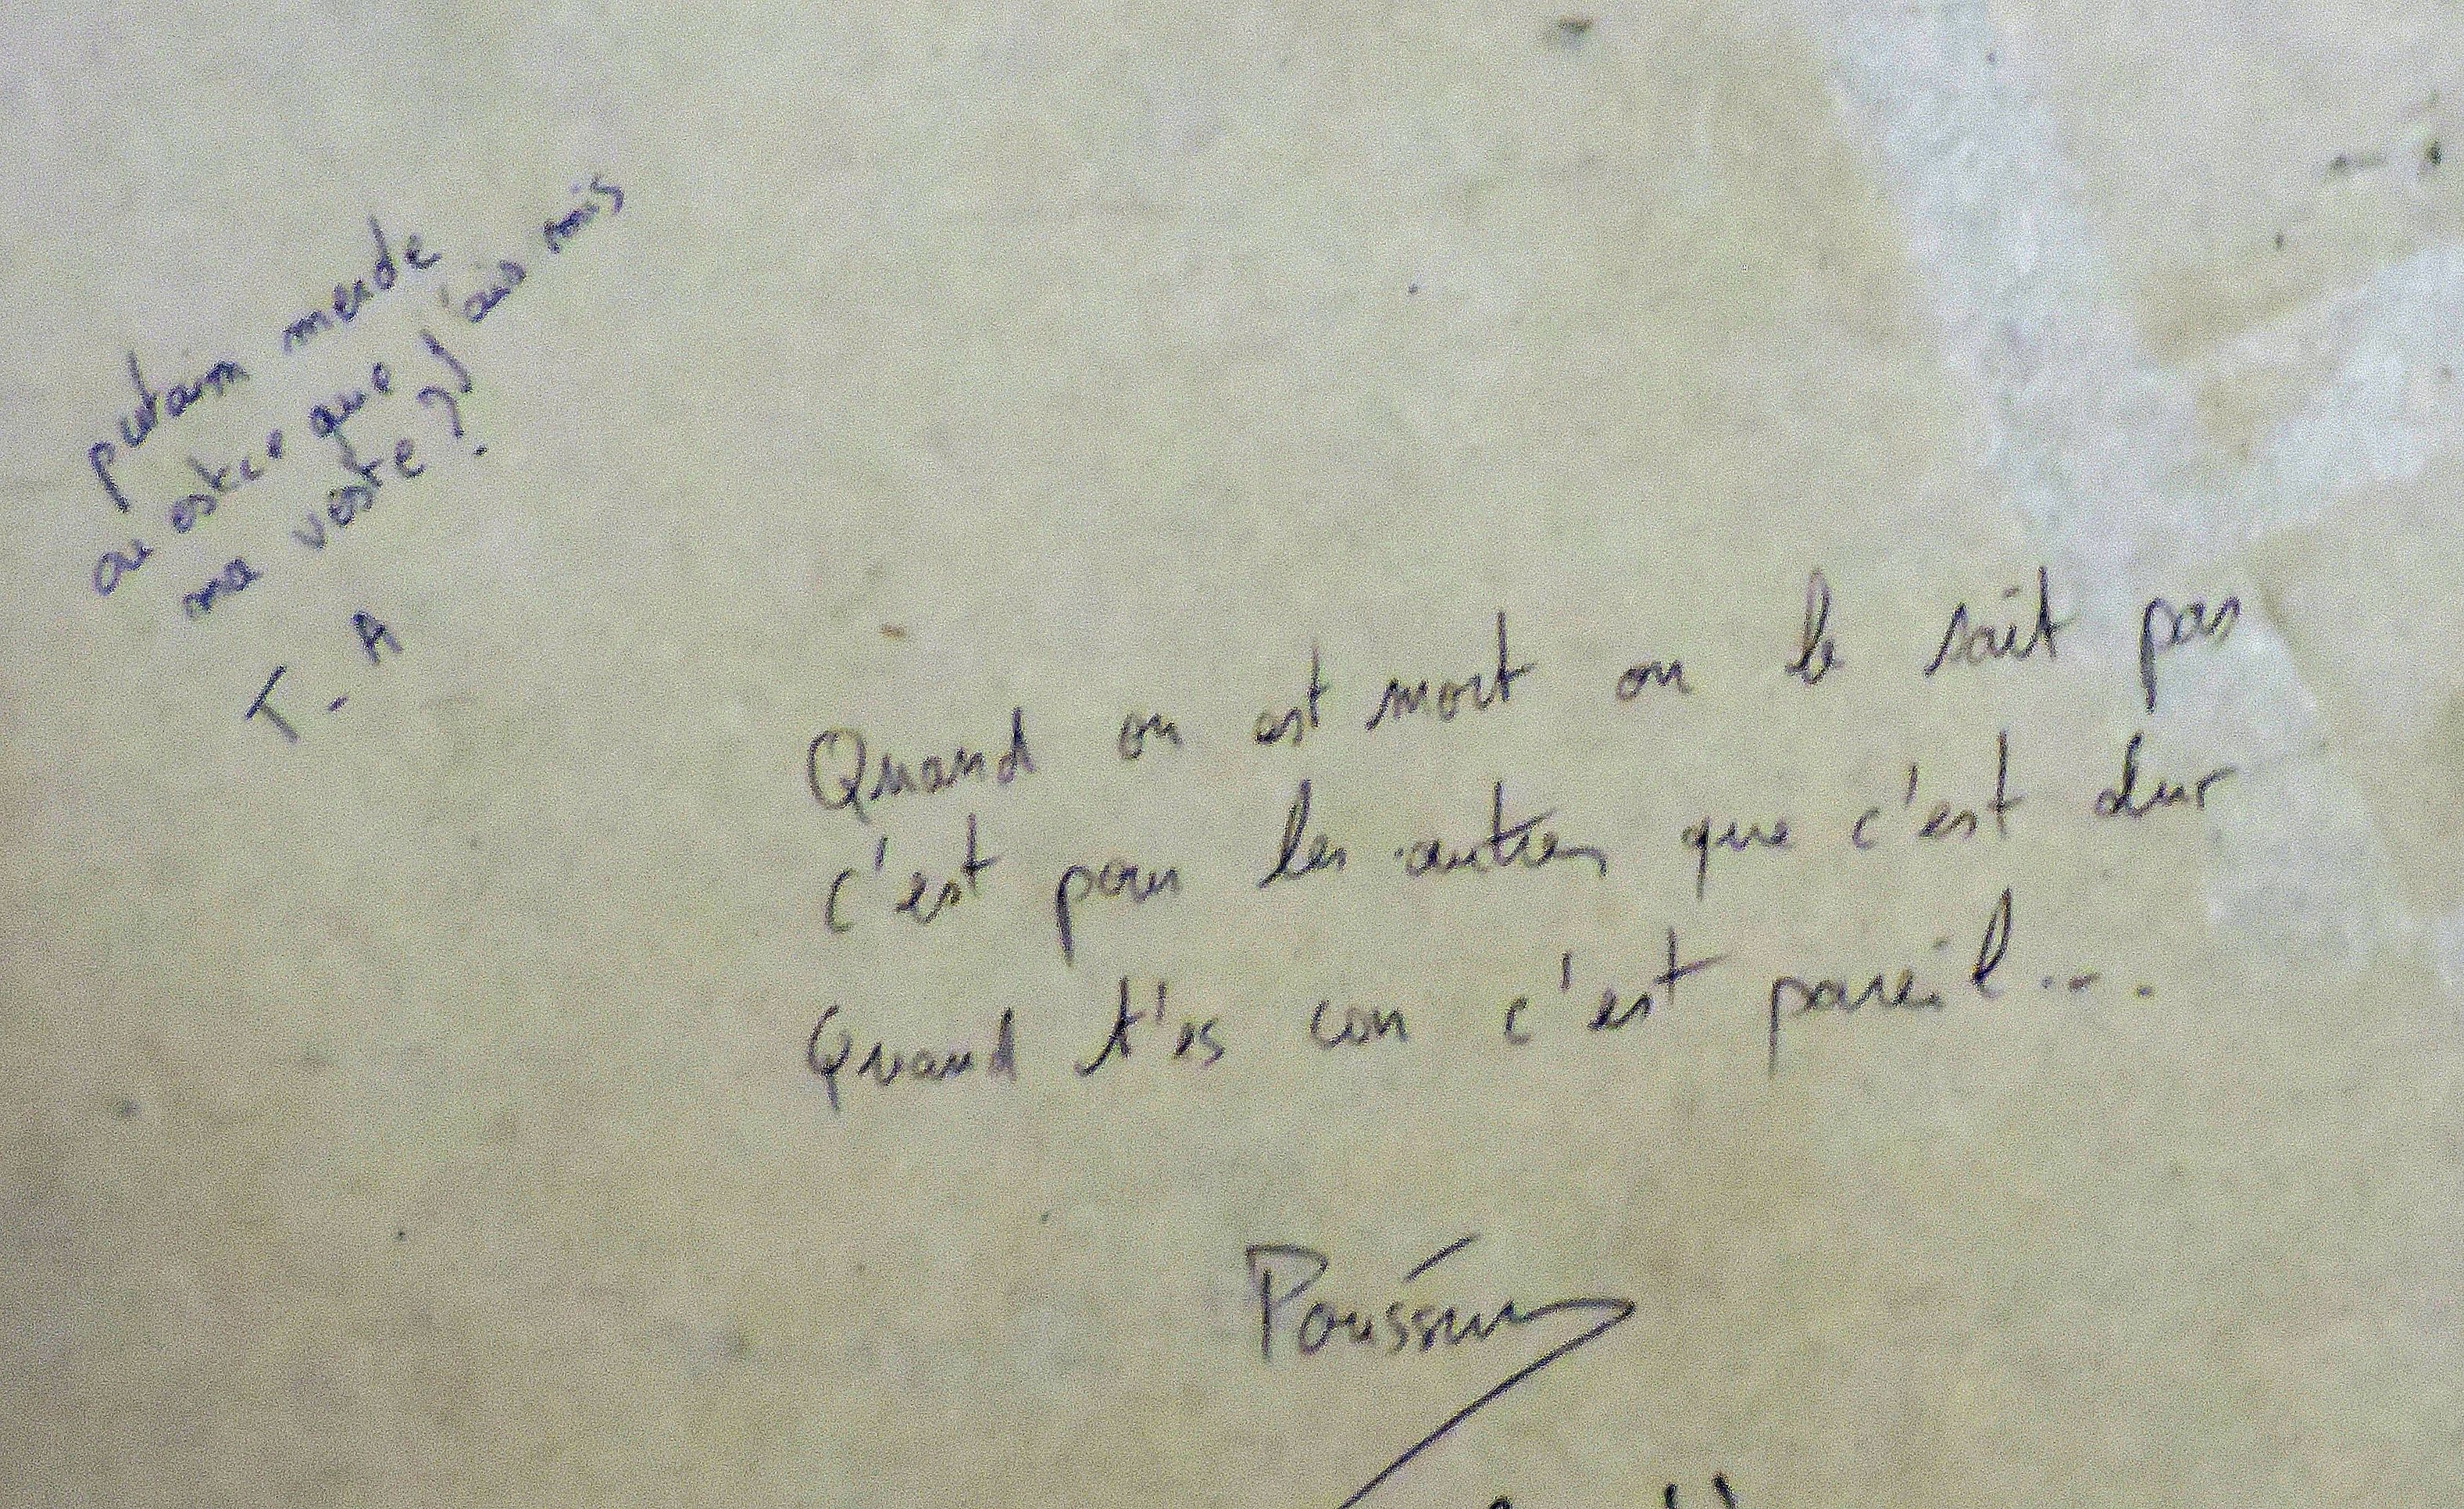 putain merde
ou estce que j'ais mis
ma veste ?
T - A
Quand on est mort on le sait pas
c'est pour les autres que c'est dur
Quand t'es con c'est pareil...
Poussin